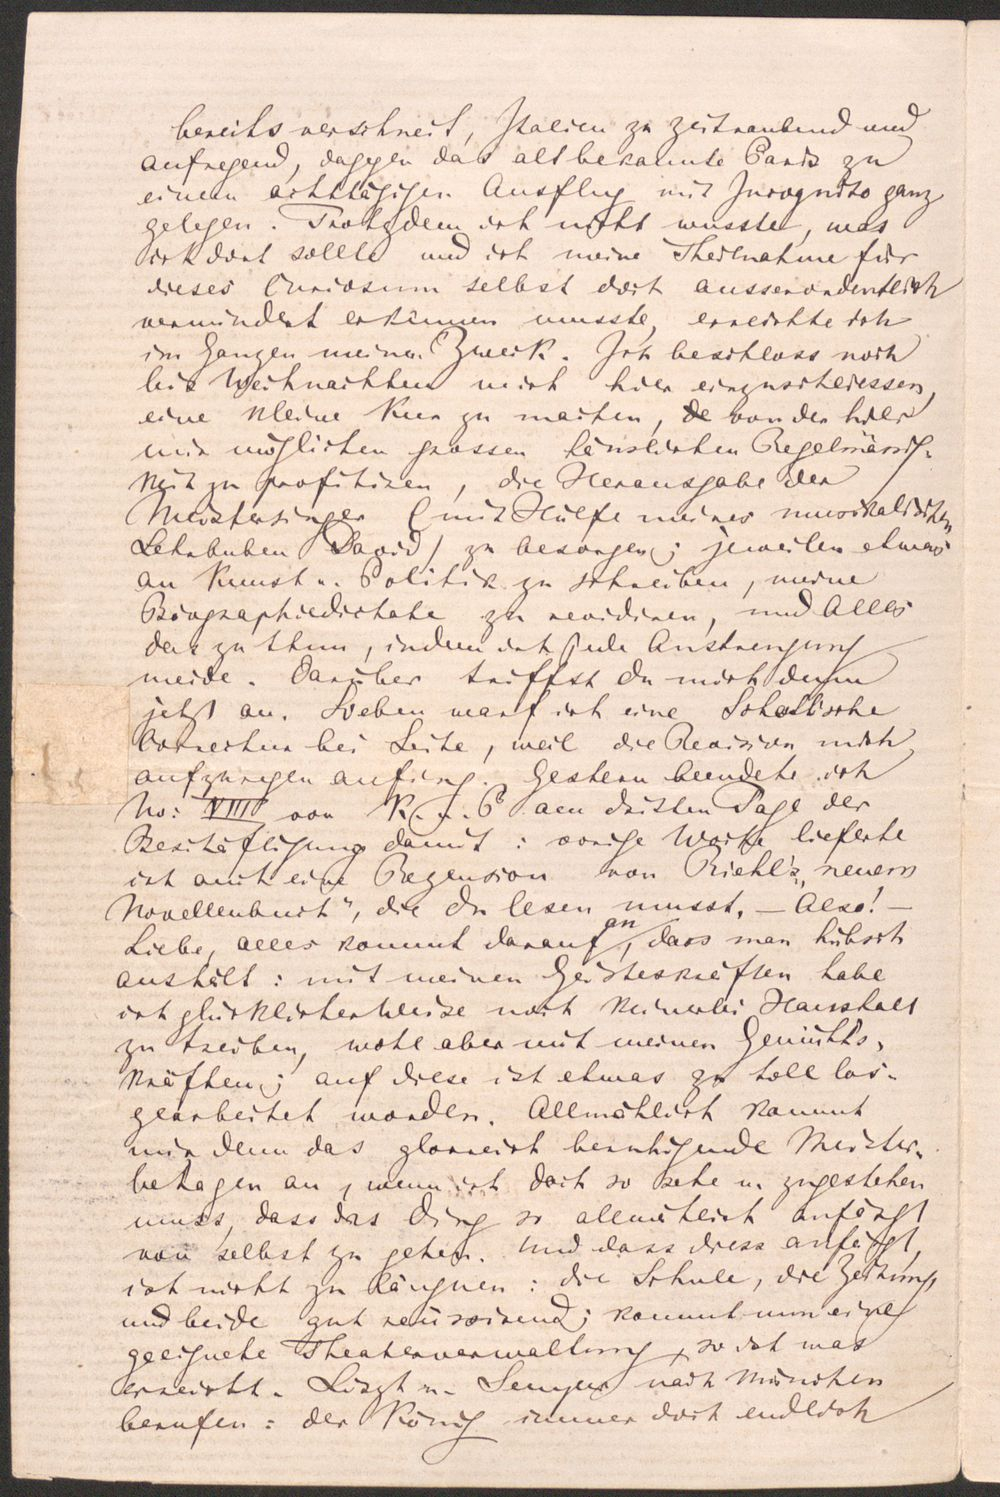 bereits verschneit, Italien zu zeitraubend und
aufregend, dagegen das altbekannte Paris zu
einem achttägigen Ausflug mit Incognito ganz
gelegen. Trotzdem ich nicht wusste, was
ich dort sollte und ich meine Theilnahme für
dieses Curiosum selbst dort ausserordentlich
vermindert erkennen musste, erreichte ich
im Ganzen meinen Zweck. Ich beschloss noch
bis Weihnachten mich hier einzuschliessen,
eine kleine Kur zu machen, von der hier
mir möglichen grossen häuslichen Regelmässig-
keit zu profitiren, die Herausgabe der
Meistersinger (mit Hülfe meines musikalischen
Lehrbuben David) zu besorgen; jeweilen etwas
an Kunst u. Politik zu schreiben, meine
Biographiedictate zu revidiren, und Alles
das zu thun, indem ich jede Anstrengung
meide. Darüber triffst du mich denn
jetzt an. Soeben warf ich eine Schottische
Correctur bei Seite, weil die Revision mich
aufzuregen anfing. Gestern beendete ich
No: VIIII von K. u. P am dritten Tage der
Beschäftigung damit: vorige Woche lieferte
ich auch eine Rezension von Riehl's „neuem
Novellenbuch", die du lesen musst. — Also! —
Liebe, alles kommt darauf an, dass man hübsch
aushält: mit meinen Geisteskräften habe
ich glücklicherweise noch keinerlei Haushalt
zu treiben, wohl aber mit meinen Gemüths-
kräften; auf diese ist etwas zu toll los-
gearbeitet worden. Allmählich kommt
mir denn das glorreich beruhigende Meister-
behagen an, wenn ich doch so sehe u. zugestehen
muss, dass das Ding so allmählich anfängt
von selbst zu gehen. Und dass diess anfängt,
ist nicht zu läugnen: die Schule, die Zeitung
und beide gut reüssirend; kommt nun eine
geeignete Theaterverwaltung, so ist was
erreicht. Liszt u. Semper nach München
berufen: der König immer doch endlich